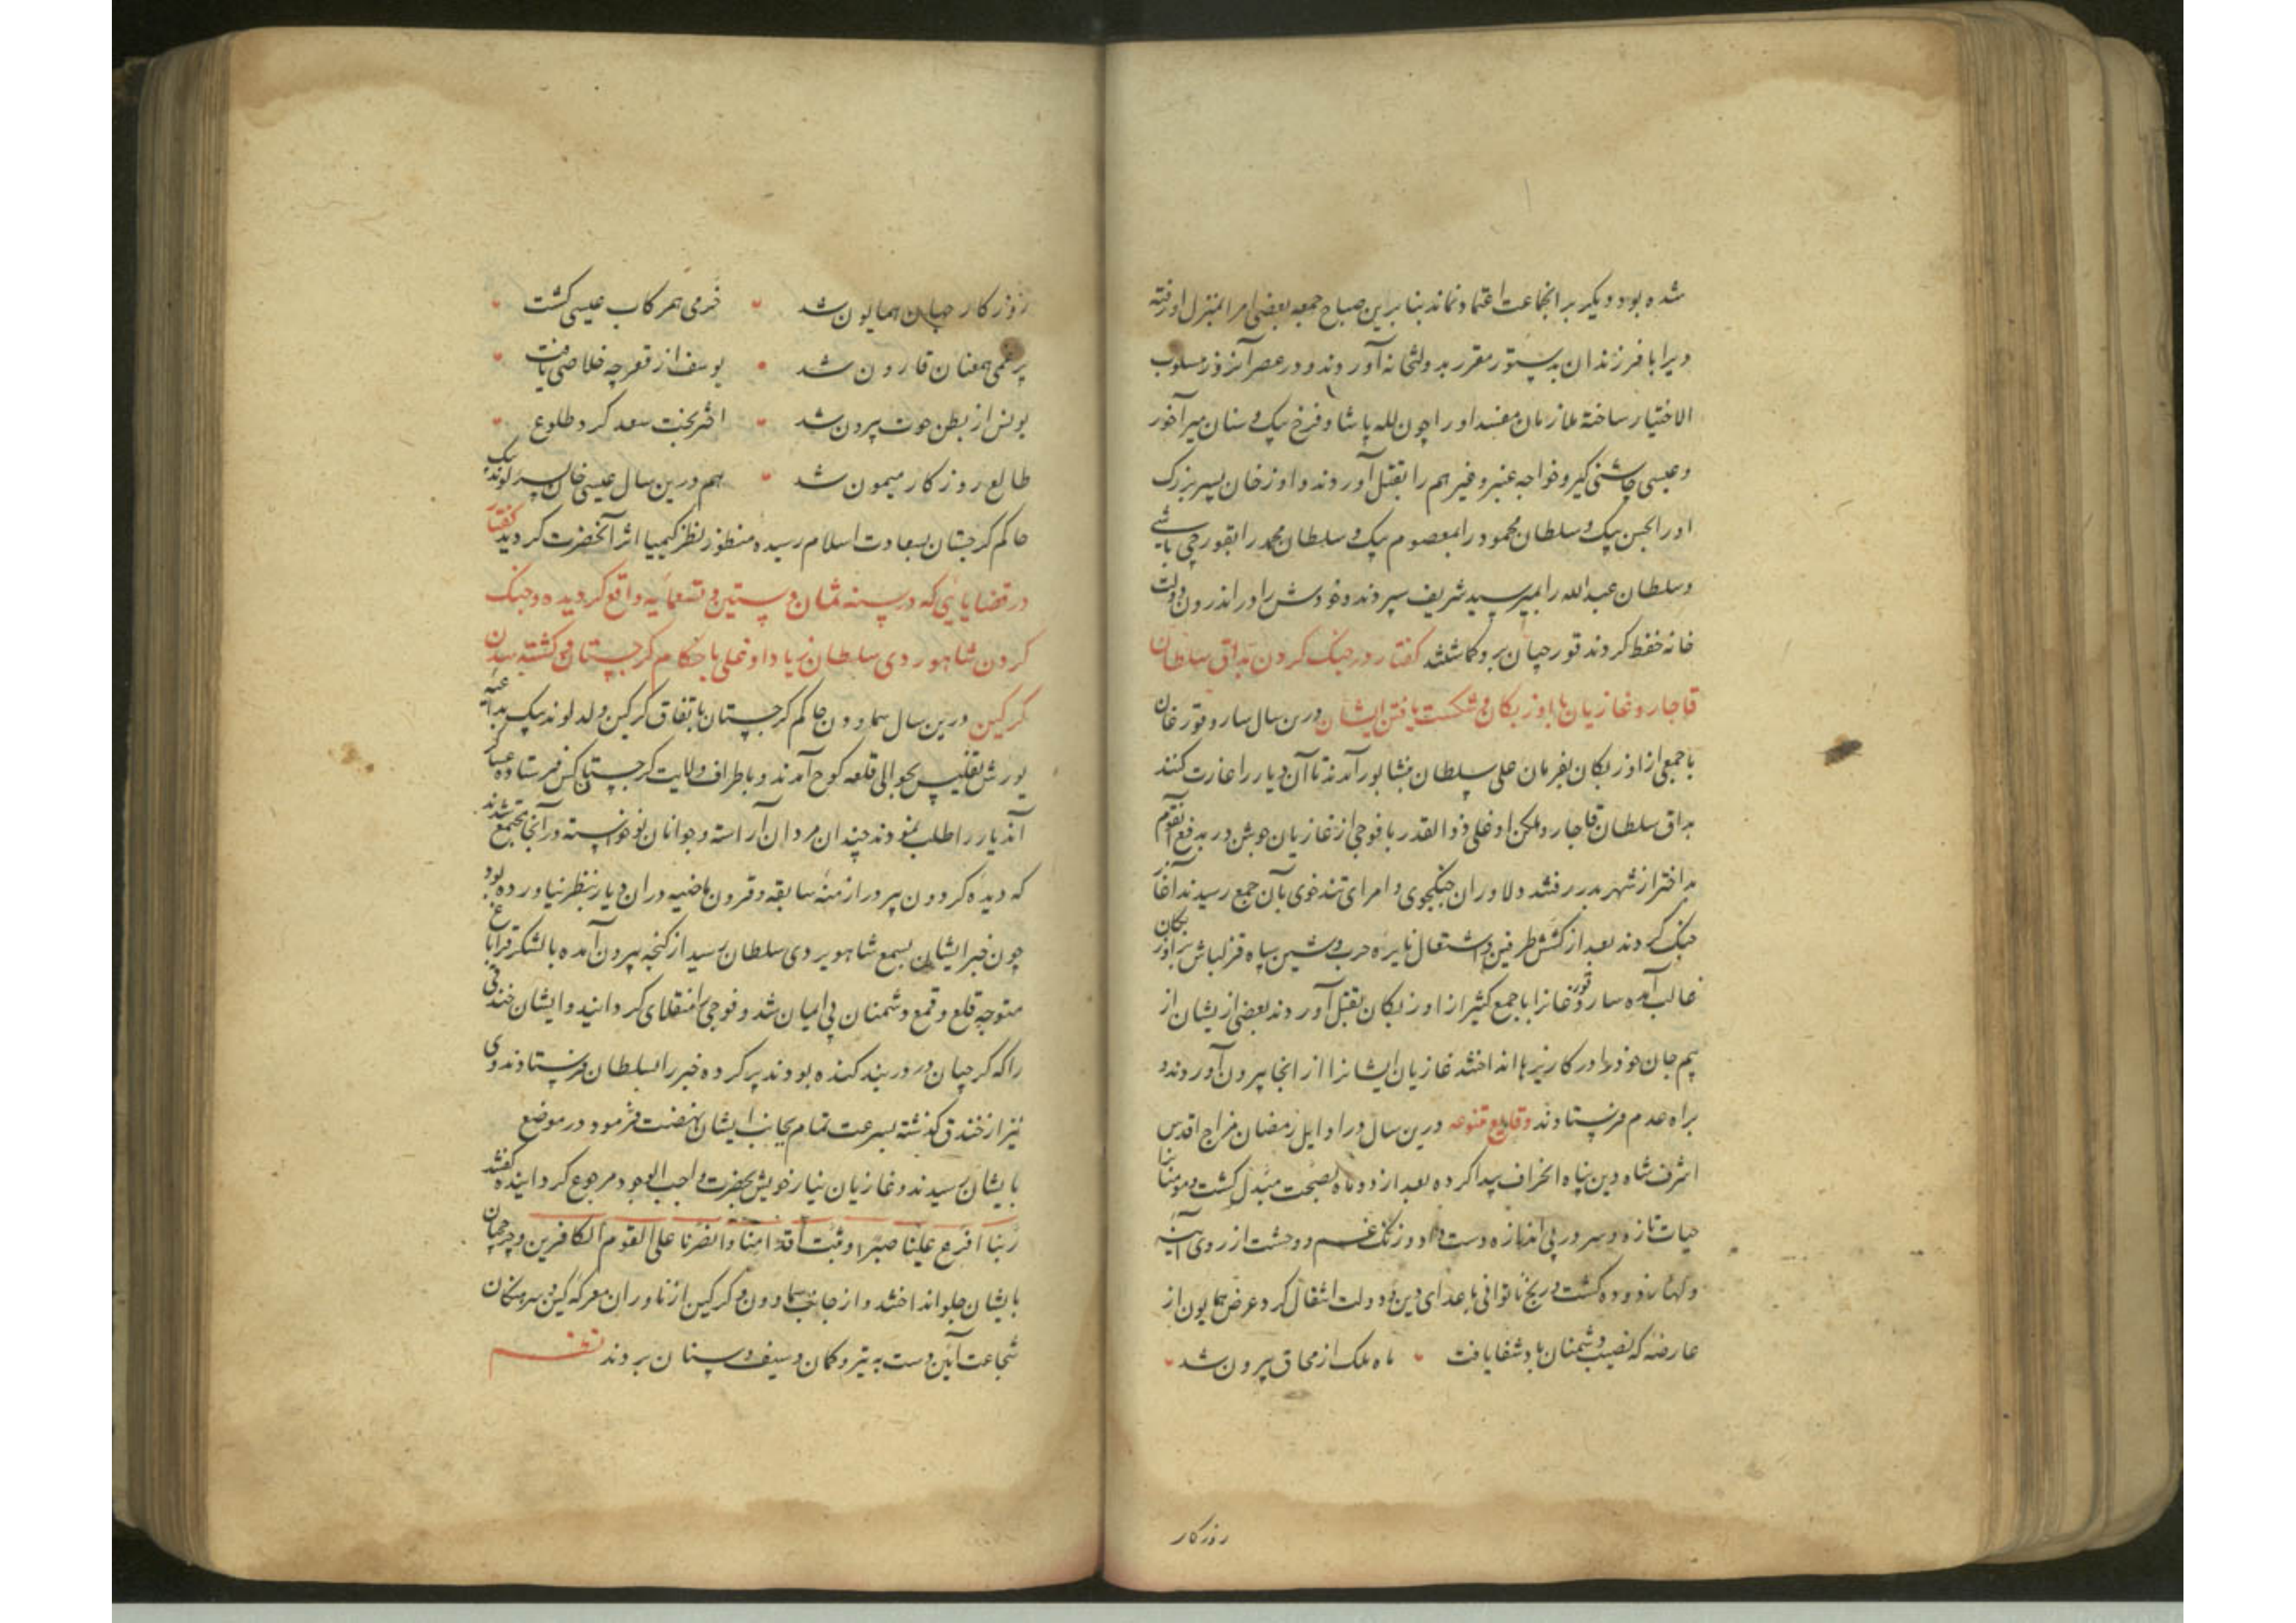 شده بود و دیگر بر انجماعت اعتماد نماند بنا برین صباح جمعه بعضی امرا بمنزل او رفته
ویرا با فرزندان بدستور مقرر بدولتخانه آوردند و در عصر آنروز مسلوب
الاختیار ساخته ملازمان مفسد او را چون لله پاشا و فرخ بیک و سنان میرآخور
و عیسی چاشنی کیر و خواجه عنبر و غیرهم را بقتل آوردند و اوزخان پسر بزرک
او را بحسن بیک و سلطان محمود را بمعصوم بیک و سلطان محمد را بقورچی باشی
و سلطان عبدالله را بمیر سید شریف سپردند و خودش را در اندرون دولت
خانه حفظ کردند قورچیان برو کماشتند کفتار در جنک کردن بداق سلطان
قاجار و غازیان با اوزبکان و شکست یافتن ایشان درین سال سارو قورغان
با جمعی از اوزبکان بفرمان علی سلطان بنشابور آمدند تا آن دیار را غارت کنند
بداق سلطان قاجار و ملکن اوغلی ذوالقدر با فوجی از غازیان جوشن در بدفع آنقوم
بد اختر از شهر بدر رفتند دلاوران جنکجوی و امرای تندخوی بآن جمع رسیدند آغاز
جنک کردند بعد از کشش طرفین و اشتعال نایره حرب و شین سپاه قزلباش بر اوزبکان
غالب آمده سارو قورغانرا با جمع کثیر از اوزبکان بقتل آوردند بعضی از یشان از
بیم جان خود را در کاریزها انداختند غازیان ایشانرا از انجا بیرون آوردند و
براه عدم فرستادند وقایع متنوعه درین سال در اوایل رمضان مزاج اقدس
اشرف شاه دین پناه انحراف پیدا کرده بعد از دو ماه بصحت مبدل کشت و مومنانرا
حیات تازه و سرور بی اندازه دست داد و زنک غم و وحشت از روی آینه
دلها زدوده کشت و رنج ناتوانی باعدای دین و دولت انتقال کرد عرض همایون از
عارضه که نصیب دشمنان باد شفا یافت ماه ملک از محاق بیرون شد
روزکار
روزکار جهان همایون شد خرمی همرکاب عیسی کشت
پرغمی همعنان قارون شد یوسف از قعر چه خلاصی یافت
یونس از بطن حوت بیرون شد اختر بخت سعد کرد طلوع
طالع روزکار میمون شد هم درین سال عیسی خان پسر لوند بیک
حاکم کرجستان بسعادت اسلام رسیده منظور نظر کیمیا اثر آنحضرت کردید کفتار
در قضایایی که در سنه ثمان و ستین و تسعمایه واقع کردیده و جنک
کردن شاهوردی سلطان زیاد اوغلی با حکام کرجستان و کشته شدن
کرکین درین سال سماوون حاکم کرجستان باتفاق کرکین ولد لوند بیک بداعیه
یورش تفلیس بحوالی قلعه کوح آمدند و باطراف ولایت کرجستان کس فرستاده عساکر
آندیار را طلب نمودند چندان مردان آراسته و جوانان نوخواسته در آنجا مجتمع شدند
که دیده کردون پیر در ازمنه سابقه و قرون ماضیه در ان دیار بنظر نیاورده بود
چون خبر ایشان بسمع شاهویردی سلطان رسید از کنجه بیرون آمده با لشکر قراباغ
متوجه قلع و قمع دشمنان بی ایمان شد و فوجی را منقلای کردانید و ایشان خندقی
را که کرجیان در دربند کنده بودند پر کرده خبر را بسلطان فرستادند وی
نیز از خندق کذشته بسرعت تمام بجانب ایشان نهضت فرمود در موضع
بایشان رسیدند و غازیان نیاز خویش بحضرت واجب الوجود مرجوع کردانیده کفتند
ربنا افرغ علینا صبرا و ثبت اقدامنا وانصرنا علی القوم الکافرین و چرخچیان
بایشان جلو انداختند و از جانب سماوون و کرکین ازناوران معرکه کین و سرهنکان
شجاعت آیین دست به تیر و کمان و سیف و سنان بردند نظم